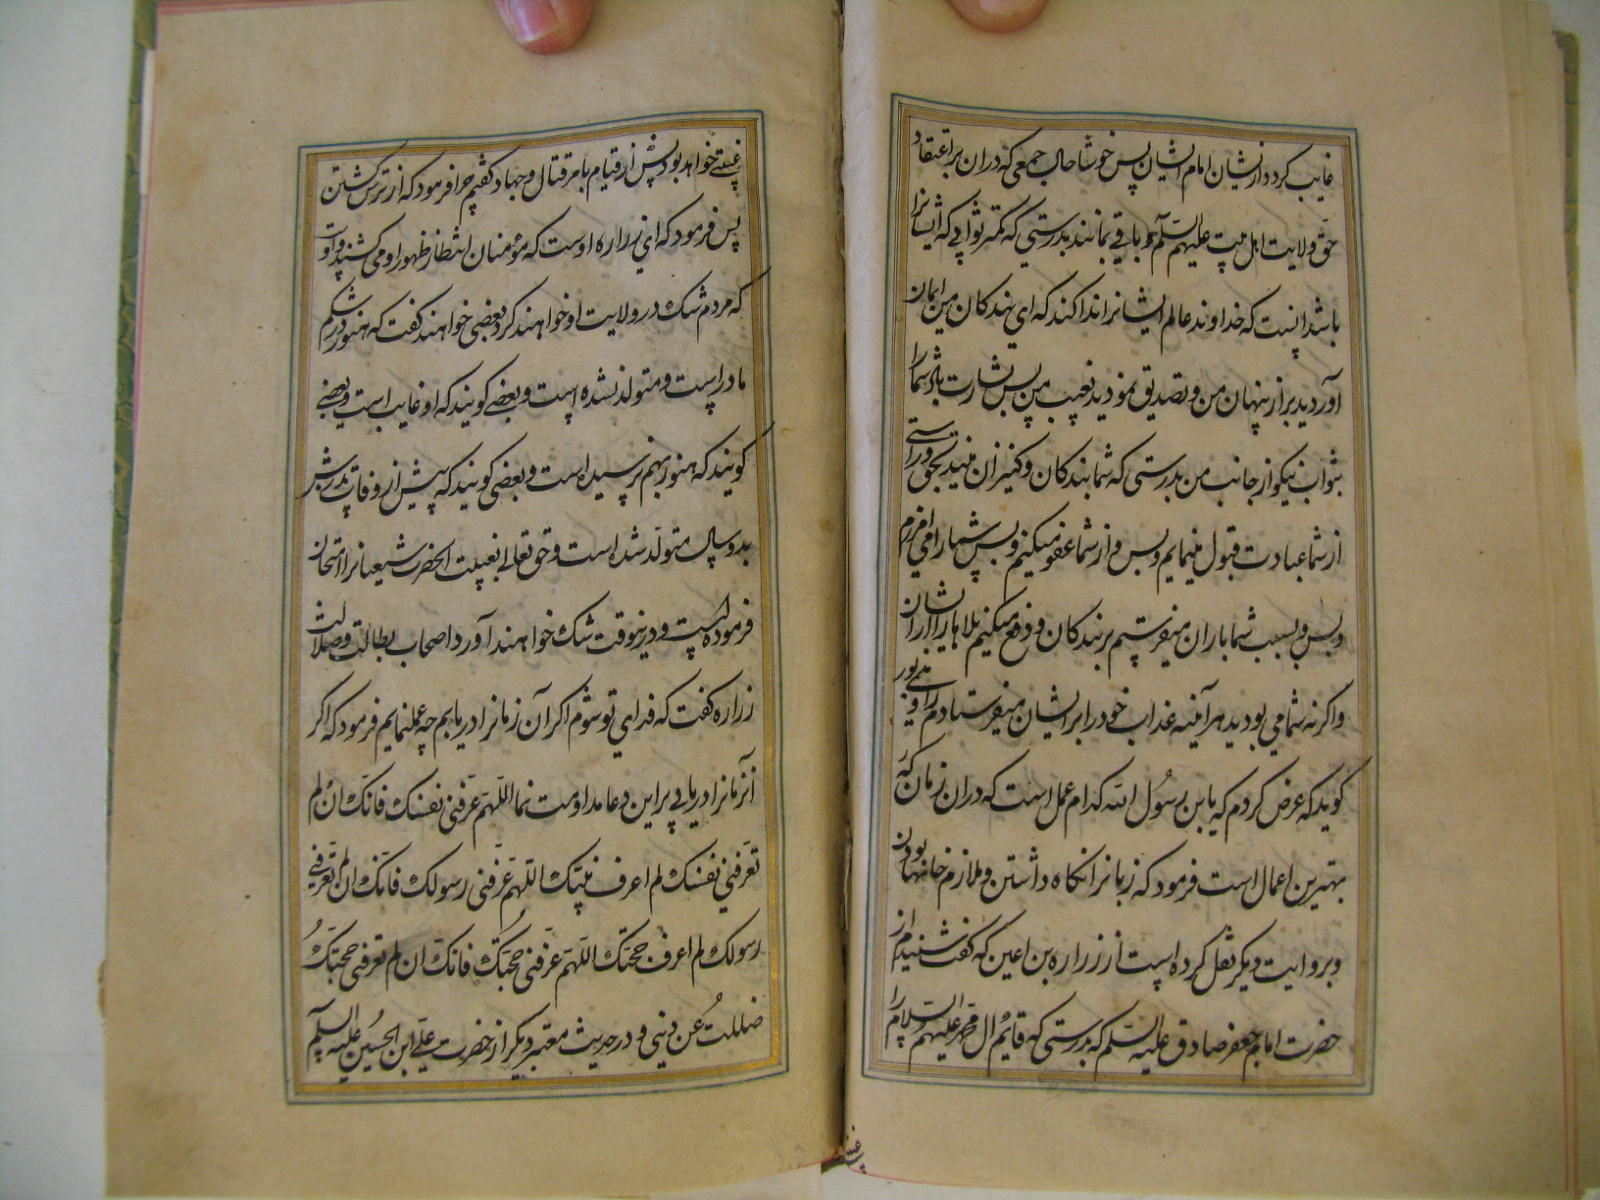 غایب کردد از یشان امام ایشان پس خوشا حال جمعی که در ان بر اعتقاد
حق ولایت اهل بیت علیهم السلم باقی بمانند بدرستی که کمتر ثوابی که ایشانرا
باشد اینست که خداوند عالم ایشانرا ندا کند که ای بندکان من ایمان
آوردید براز پنهان من و تصدیق نمودید بغیب من پس بشارت باد شما را
بثواب نیکو از جانب من بدرستی که شما بندکان و کنیزان منید بحق و راستی
از شما عبادت قبول مینمایم و بس و از شما عفو میکنم و بس شما را می امرزم
و بس و بسبب شما باران میفرستم بر بندکان و دفع میکنم بلاها را از ایشان
و اکر نه شما می بودید هر آینه عذاب خود را بر ایشان میفرستادم راوی
کوید که عرض کردم که یا بن رسول الله کدام عمل است که در ان زمان که
بهترین اعمال است فرمود که زبانرا نکاه داشتن و ملازم خانها بودن
و بروایت دیکر نقل کرده است از زراره بن اعین که کفت شنیدم از
حضرت امام جعفر صادق علیه السلم که بدرستی که قایم ال محمد علیهم السلام را
غیبتی
غیبتی خواهد بود پیش از قیام بامر قتال و جهاد کفتم چرا فرمود که از ترس کشتن
پس فرمود که ای زراره اوست که مؤمنان انتظار ظهور او می کشند و اوست
که مردم شک در ولایت او خواهند کرد بعضی خواهند کفت که هنوز در شکم
مادر است و متولد نشده است و بعضی کویند که او غایب است و بعضی
کویند که هنوز بهم نرسیده است و بعضی کویند که پیش از وفات پدرش
بدو سال متولد شده است و حق تعالی بغیبت انحضرت شیعیانرا امتحان
فرموده است و درینوقت شک خواهند آورد اصحاب بطالت و ضلالت
زراره کفت که فدای تو شوم اکر آن زمانرا دریابم چه عمل نمایم فرمود که اکر
آنزمانرا دریابی بر این دعا مداومت نما اللهم عرفنی نفسک فانک ان لم
تعرفنی نفسک لم اعرف نبیک اللهم عرفنی رسولک فانک ان لم تعرفنی
رسولک لم اعرف حجتک اللهم عرفنی حجتک فانک ان لم تعرفنی حجتک
ضللت عن دینی و در حدیث معتبر دیکر از حضرت علی ابن الحسین علیه السلم